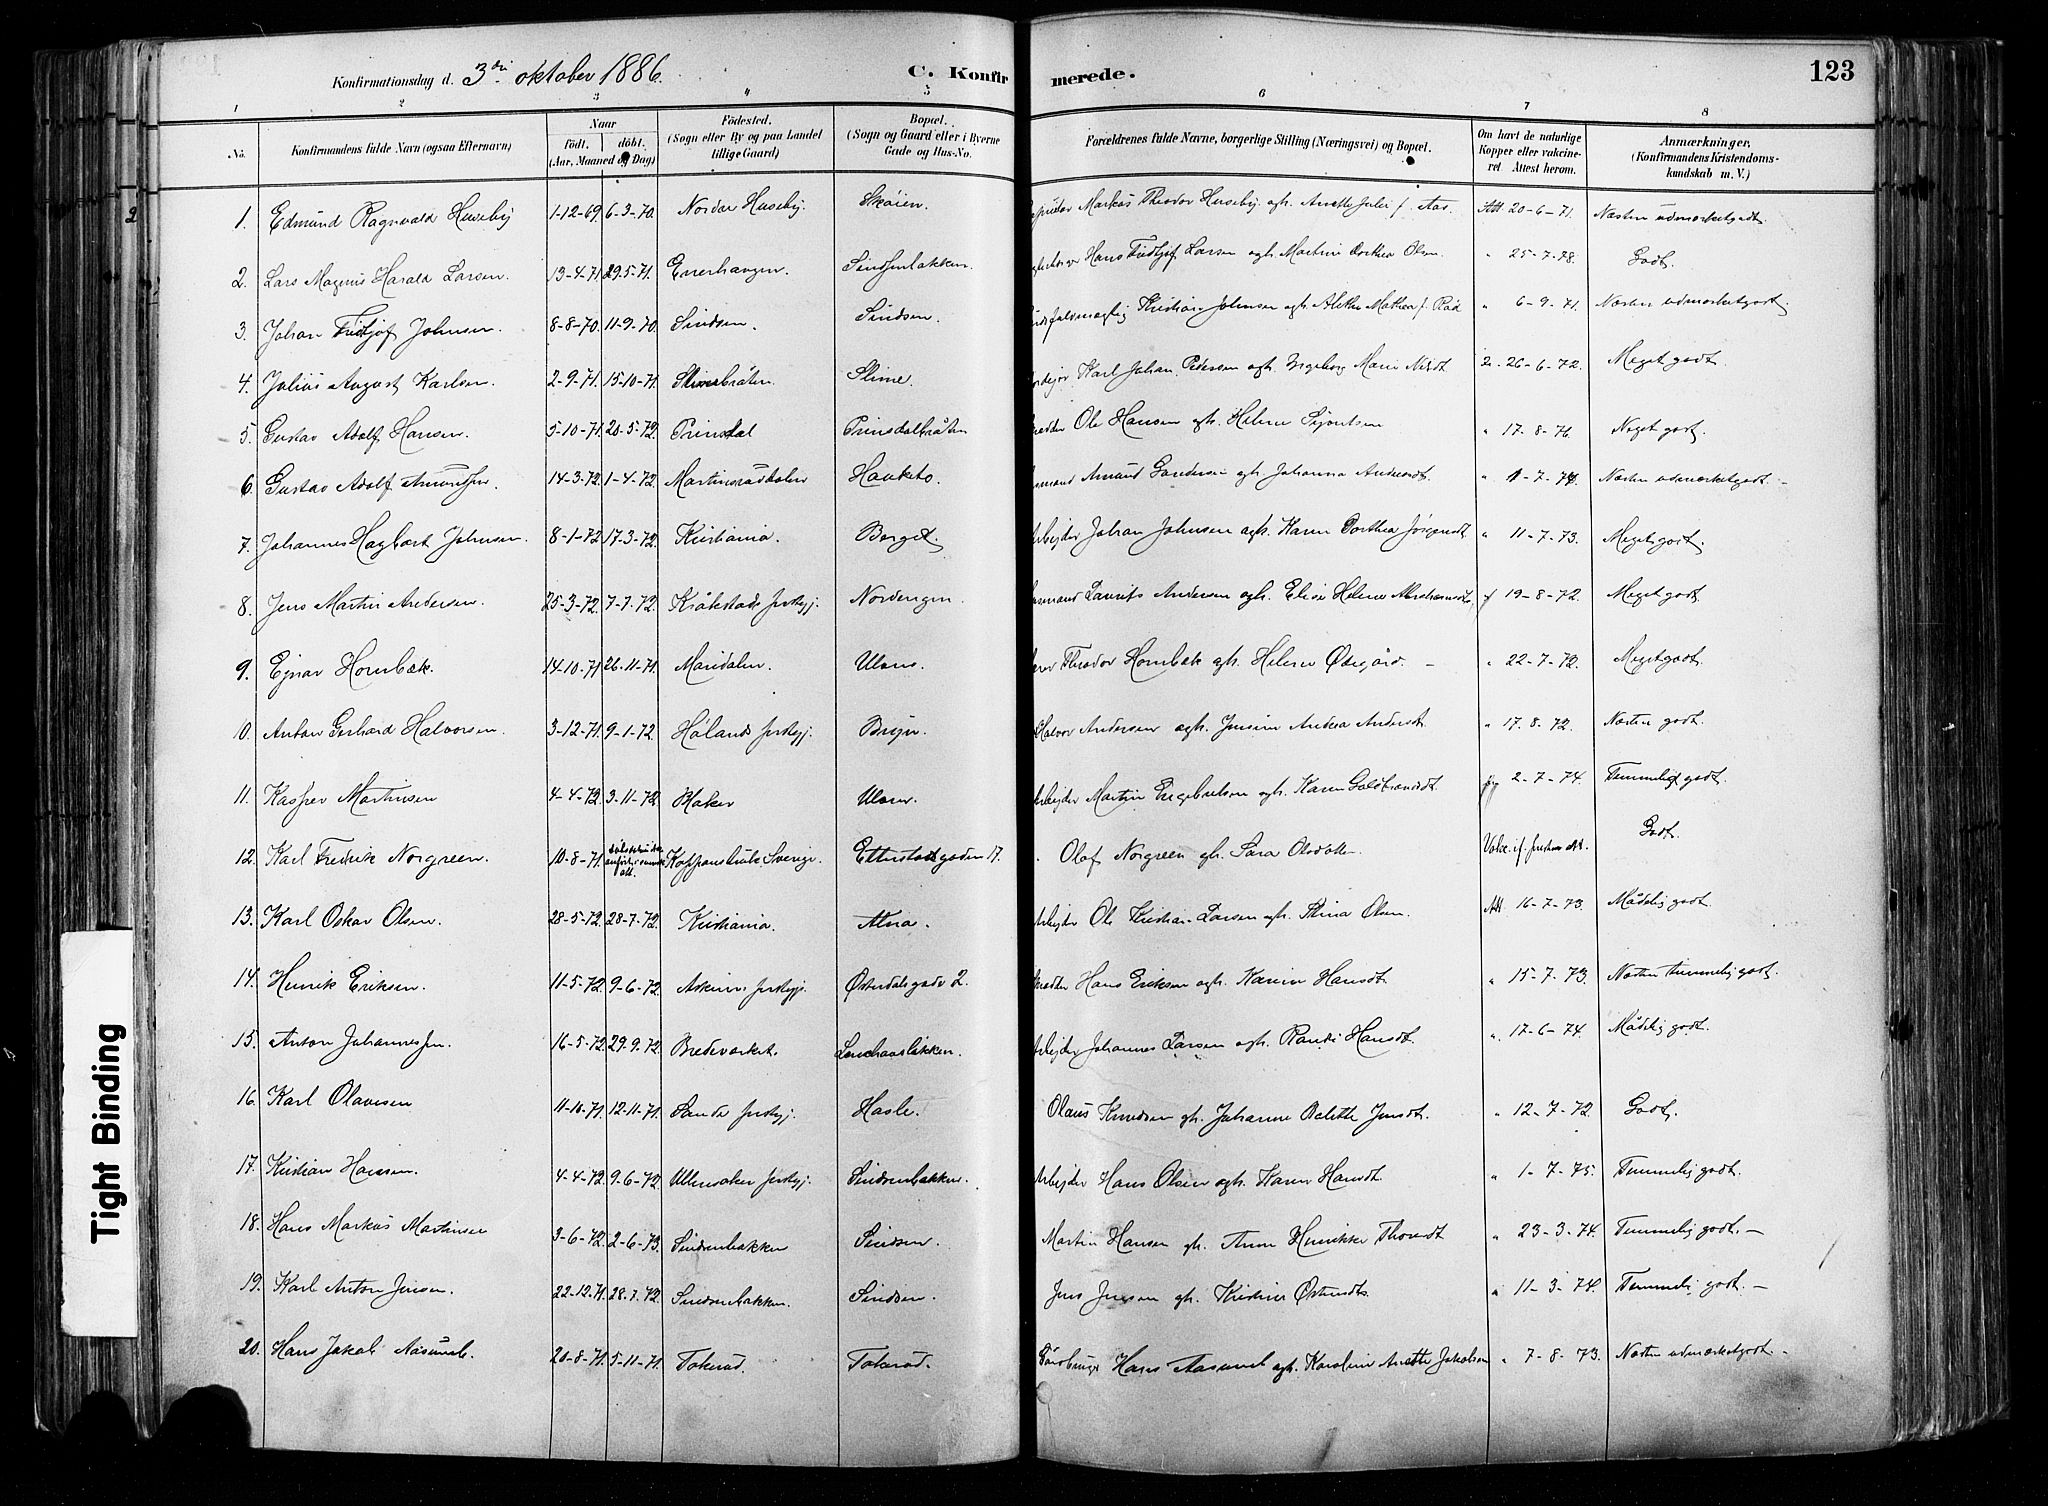 Konfirmationsdag d. 3die oktober 1886. C. Konfirmerede. 123
1 2 3 4 5 6 7 8
No. Konfirmandens fulde Navn (ogsaa Efternavn) Naar født. døbt. (Aar, Maaned og Dag) Fødested. (Sogn eller By og paa Landet tillige Gaard) Bopæl. (Sogn og Gaard eller i Byerne Gade og Hus-No. Forældrenes fulde Navne, borgerlige Stilling (Næringsvei) og Bopæl. Om havt de naturlige Kopper eller vakcineret Attest herom. Anmærkninger, (Konfirmandens Kristendomskundskab m. V.)
1. Edmund Ragnvald Huseby 1-12-69. 6-3-70. Nordre Huseby. Skøien. Markus Theodor Huseby og h. Anette Julie f. Aas. Att 20-6-71. Næsten udmærketgodt.
2. Lars Magnus Harald Larsen. 13-4-71. 29-5-71. Enerhaugen. Sindsenbakken. Hans Fridtjof Larsen og h. Martine Dorthea Olsen. " 25-7-78. Godt.
3. Johan Fridtjof Johnsen. 8-8-70. 11-9-70. Sindsen. Sindsen. Kristian Johnsen og h. Alethe Mathea f. Rød " 6-9-71. Næsten udmærketgodt.
4. Julius August Karlsen. 2-9-71. 15-10-71. Slimebråten. Slime. Karl Johan Pedersen og h. Ingeborg Marie 26-6-72. Meget godt.
5. Gustav Adolf Hansen. 5-10-71. 20-5-72. Prinsdal Prinsdalbråten Ole Hansen og h. Helene " 17-8-76. Meget godt.
6. Gustav Adolf Amundsen. 14-3-72. 1-4-72. Hauketo. Amund og h. Johanna Andreasdt. " 1-7-74. Næsten udmærketgodt. -
7. Johannes Hagbart Johnsen. 8-1-72 17-3-72. Kristiania. Berget. Arbejder Johan Johnsen og h. Karen Dorthea Jørgensdt. " 11-7-73. Meget godt.
8. Jens Martin Andersen. 25-3-72. 7-7-72. Kråkstads prstgj. Nordengen. Laurits Andersen og h. Elise Helene 19-8-72. Meget godt.
9. Ejnar Hornbæk. 14-10-71 26-11-71. Maridalen. Ulven. Theodor Hornbæk og h. Helene Østgård. - " 22-7-72. Meget godt.
10. Anton Gerhard Halvorsen. 3-12-71. 9-1-72. Hølands prstgj. Bryn. Halvor Andersen og h. Jensine Andrea Andersdt. " 17-8-72. Næsten godt.
11. Kasper Martinsen 4-4-72. 3-11-72. Blaker Ulven. Arbejder Martin Engebretsen og h. Karen Guldbrandsdt. 2-7-74. Temmelig godt.
12. Karl Fredrik Norgreen. 10-8-71. Sverige. Etterstadgaden 17. Olaf Norgreen og h. Sara Olsdatter. Godt.
13. Karl Oskar Olsen. 28-5-72. 28-7-72. Kristiania. Alna. Arbejder Ole Kristian Larsen og h. Stina Olsen. Att. 16-7-73. Mådelig godt.
14. Henrik Eriksen. 11-5-72. 9-6-72. Askims prstgj. Østerdalsgade 2. Hans Eriksen og h. Karine Hansdt. " 15-7-73. Næsten temmelig godt.
15. Anton Johannessen. 16-5-72. 29-9-72. Bredeverket. Arbejder Johannes Larsen og h. Randi Hansdt. " 17-6-74. Mådelig godt.
16. Karl Olavesen 11-10-71. 12-11-71. Sande prstgj. Hasle. Olaus Knudsen og h. Johanne Bolette Jensdt. " 12-7-72. Godt.
17. Kristian Hansen. 4-4-72. 9-6-72. Ullensaker prstgj. Sindsenbakken. Arbejder Hans Olsen og h. Karen Hansdt. " 1-7-75. Temmelig godt.
18. Hans Markus Martinsen 3-6-72. 2-6-73. Sindsenbakken Sindsen. Martin Hansen og h. Anne Henrikke Thorsdt " 23-3-74. Temmelig godt. -
19. Karl Anton Jensen. 22-12-71. 28-7-72. Sindsenbakken. Sindsen. Jens Jensen og h. Kristine " 11-3-74. Temmelig godt. -
20. Hans Jakob Aasund. 20-8-71. 5-11-71. Tokerud. Tokerud. Gårdbruger Hans Aasund og h. Karoline Anette Jakobsen " 7-8-73. Næsten udmærketgodt. -
Tight Binding